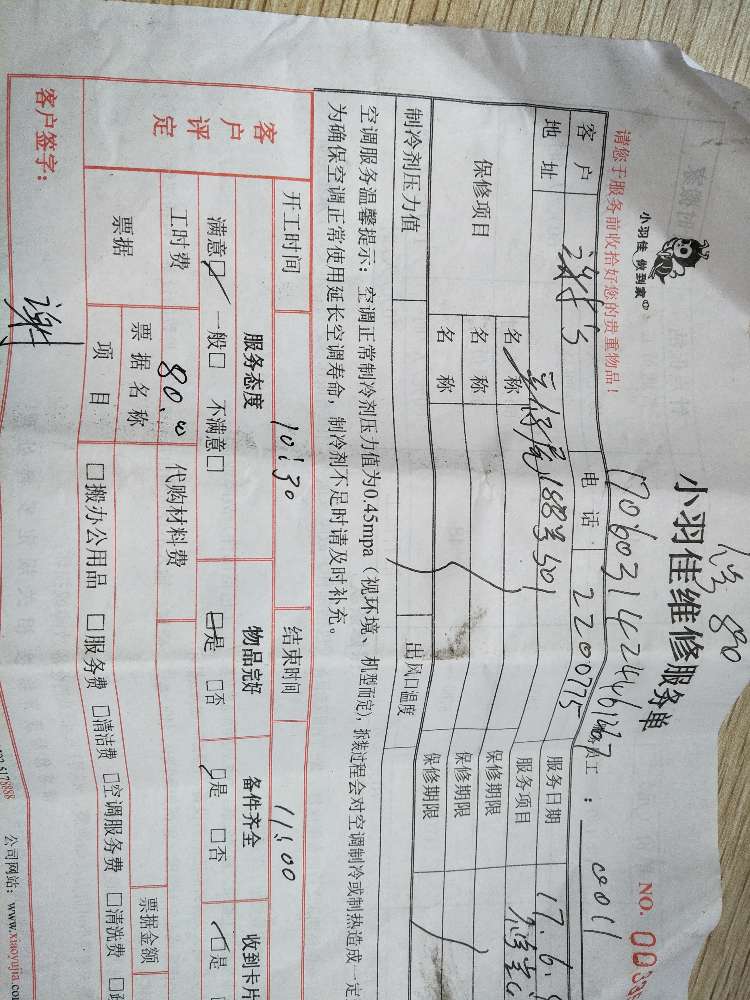 小羽佳 做到家
小羽佳维修服务单
NO. 003
请您于服务前收拾好您的贵重物品！
员工： 0011
客户 谢 电话 2200775 服务日期 17.6.
地址 188号501 服务项目
保修项目 名称 保修期限
名称 保修期限
名称 保修期限
制冷剂压力值 出风口温度
空调服务温馨提示：空调正常制冷剂压力值为0.45mpa（视环境、机型而定），拆装过程会对空调制冷或制热造成一定
为确保空调正常使用延长空调寿命，制冷剂不足时请及时补充。
开工时间 10:30 结束时间 11:00
客户评定 服务态度 物品完好 备件齐全 收到卡片
满意☑ 一般□ 不满意□ ☑是 □否 ☑是 □否 ☑是
工时费 80.00 代购材料费
票据 票据名称 票据金额
项目 □搬办公用品 □服务费 □清洁费 □空调服务费 □清洗费
客户签字： 谢
公司网站：www.xiaoyujia.co